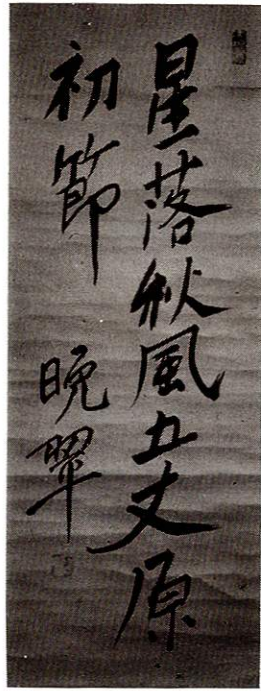 星落秋風五丈原
初節　晩翠